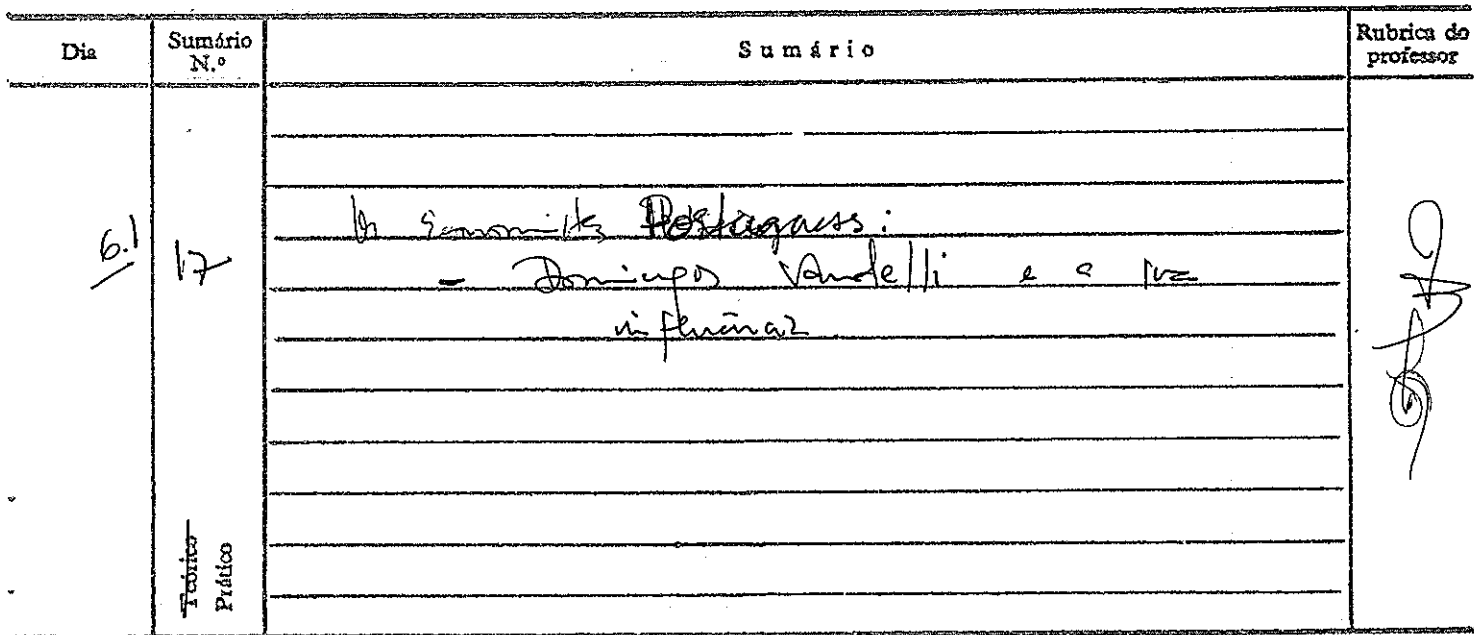 Dia
Sumário N.º
Sumário
Rubrica do professor
6.1
17
Os Economistas Portugueses:
- Domingos Vandelli e a sua
influência
Teórico
Prático